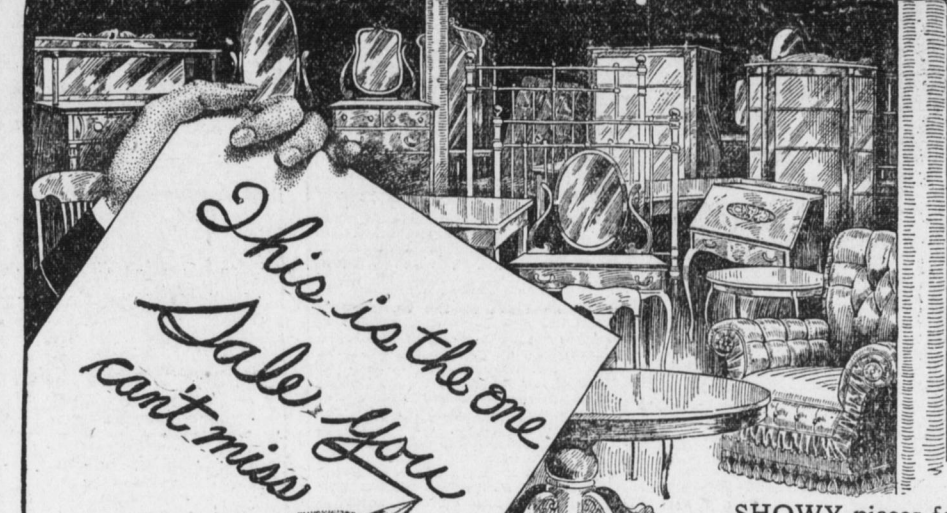 This is the one
Sale you
can't miss
SHOWY pieces